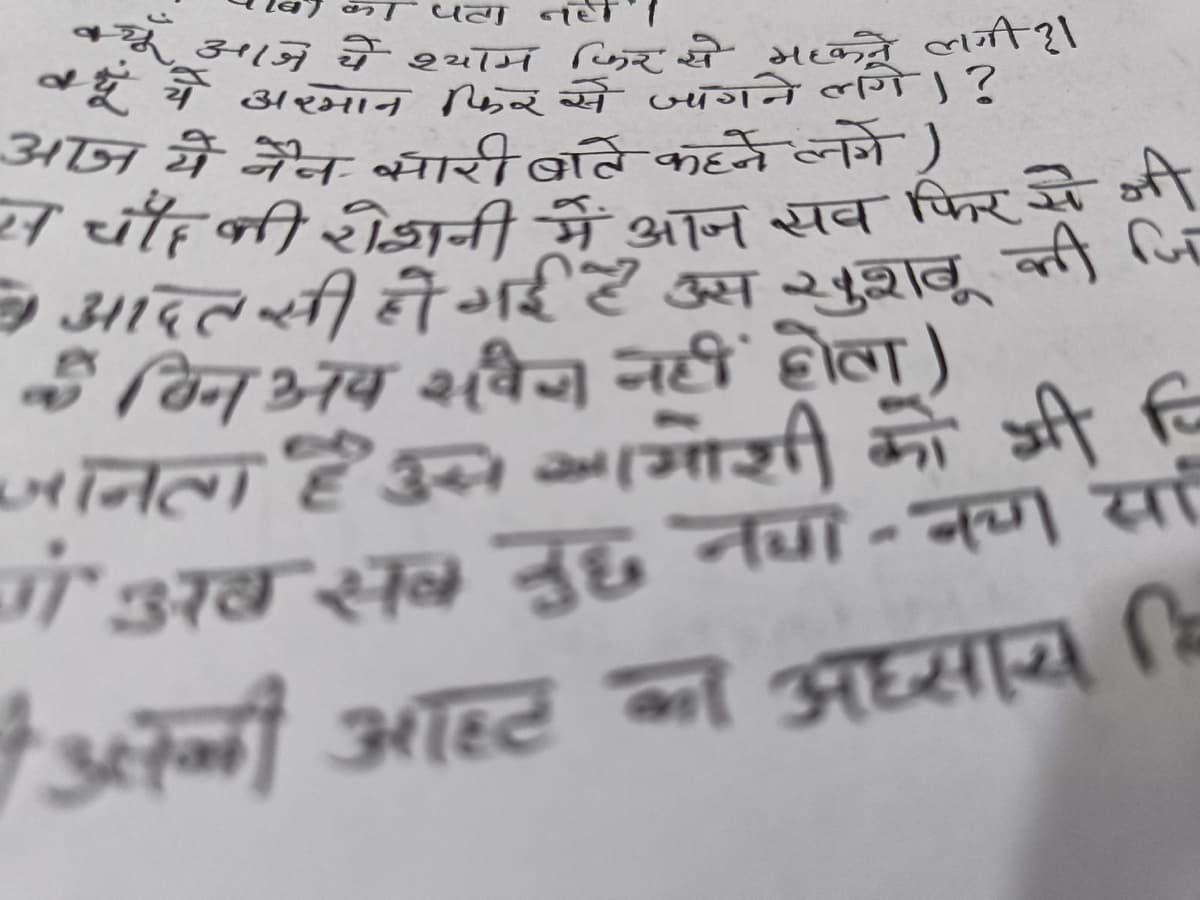 का पता नहीं।
क्यूँ आज ये श्याम फिर से महकने लगी ?।
क्यूँ ये अरमान फिर से जागने लगे। ?
आज ये नैन सारी बाते कहने लगे)
चाँद की रोशनी में आज सब फिर से
आदत सी हो गई है उस खुशबू की
के बिन अब सवेरा नहीं होता)
जानता है उस खामोशी को भी
अब सब कुछ नया - नया
उसकी आहट का अहसास